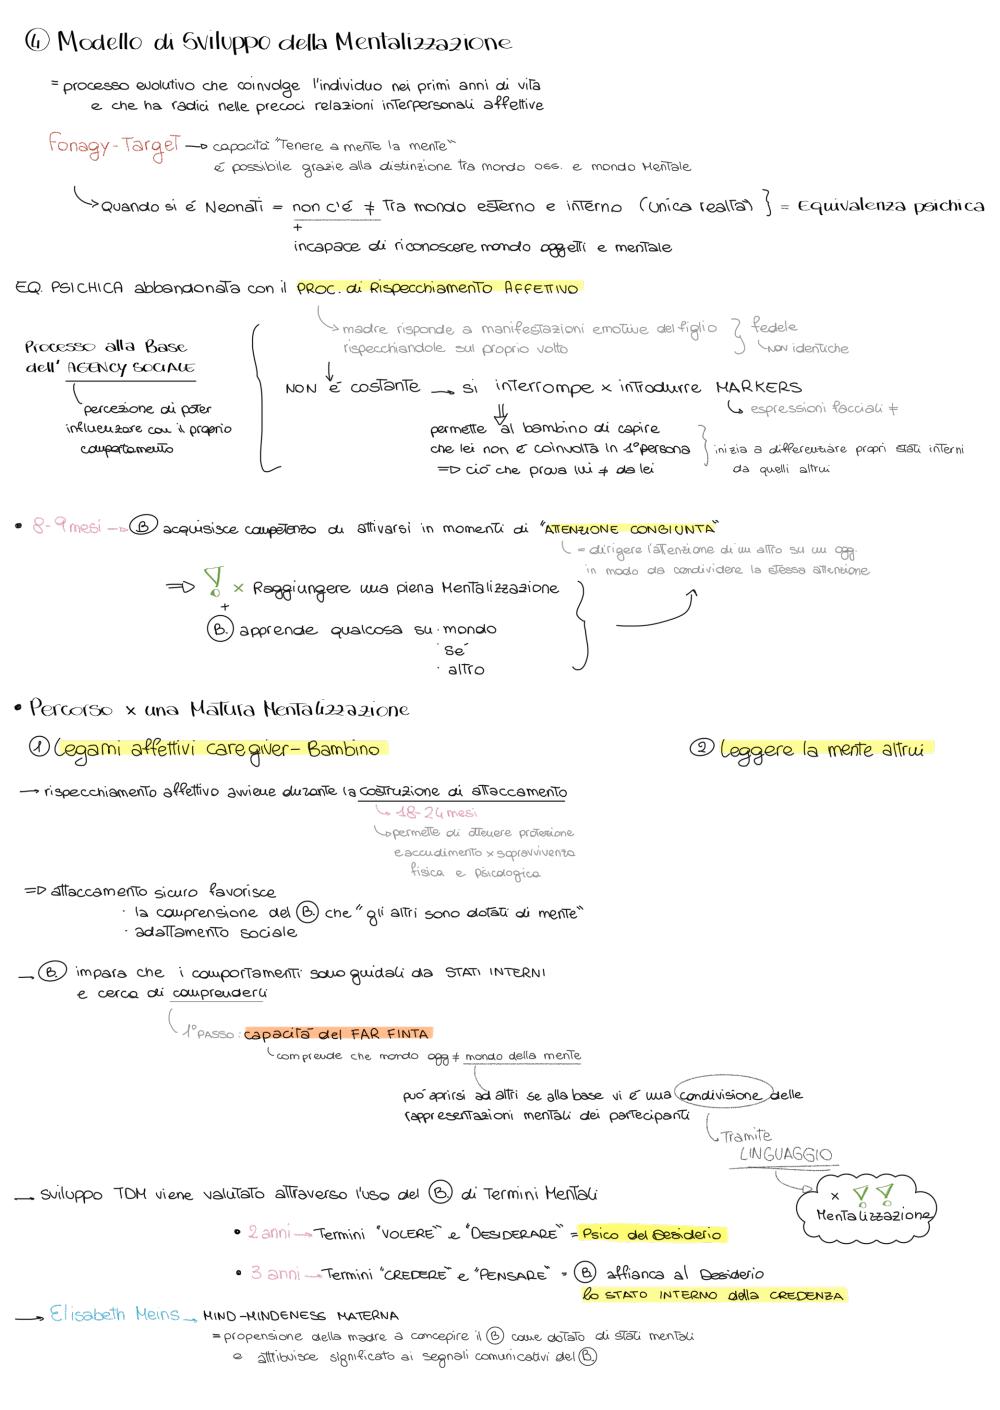 ④ Modello di Sviluppo della Mentalizzazione
= processo evolutivo che coinvolge l'individuo nei primi anni di vita
e che ha radici nelle precoci relazioni interpersonali affettive
Fonagy-Target → capacità "Tenere a mente la mente"
é possibile grazie alla distinzione tra mondo ogg. e mondo Mentale
Quando si é Neonati = non c'é ≠ tra mondo esterno e interno (unica realtà) } = Equivalenza psichica
+
incapace di riconoscere mondo oggetti e mentale
EQ. PSICHICA abbandonata con il PROC. di Rispecchiamento AFFETTIVO
madre risponde a manifestazioni emotive del figlio } fedele
rispecchiandole sul proprio volto
NON identiche
Processo alla Base
dell' AGENCY SOCIALE
percezione di poter
influenzare con il proprio
comportamento
NON é costante → si interrompe x introdurre MARKERS
espressioni facciali ≠
permette al bambino di capire
che lei non é coinvolta in 1° persona
⇒ ciò che prova lui ≠ da lei
inizia a differenziare propri stati interni
da quelli altrui
• 8-9 mesi → B acquisisce competenza di attivarsi in momenti di "ATTENZIONE CONGIUNTA"
= dirigere l'attenzione di un altro su un ogg.
in modo da condividere la stessa attenzione
⇒ ! x Raggiungere una piena Mentalizzazione
+
B. apprende qualcosa su · mondo
· sé
· altro
• Percorso x una Matura Mentalizzazione
① Legami affettivi caregiver-Bambino
② Leggere la mente altrui
→ rispecchiamento affettivo avviene durante la costruzione di attaccamento
18-24 mesi
permette di ottenere protezione
e accudimento x sopravvivenza
fisica e psicologica
⇒ attaccamento sicuro favorisce
· la comprensione del B. che "gli altri sono dotati di mente"
· adattamento sociale
→ B. impara che i comportamenti sono guidati da STATI INTERNI
e cerca di comprenderli
1° PASSO: capacità del FAR FINTA
comprende che mondo ogg ≠ mondo della mente
può aprirsi ad altri se alla base vi é una condivisione delle
rappresentazioni mentali dei partecipanti
Tramite
LINGUAGGIO
x ! !
Mentalizzazione
→ sviluppo TDM viene valutato attraverso l'uso del B. di Termini Mentali
• 2 anni → Termini "VOLERE" e "DESIDERARE" = Psico del Desiderio
• 3 anni → Termini "CREDERE" e "PENSARE" = B affianca al Desiderio
lo STATO INTERNO della CREDENZA
→ Elisabeth Meins → MIND-MINDENESS MATERNA
= propensione della madre a concepire il B come dotato di stati mentali
e attribuisce significato ai segnali comunicativi del B.